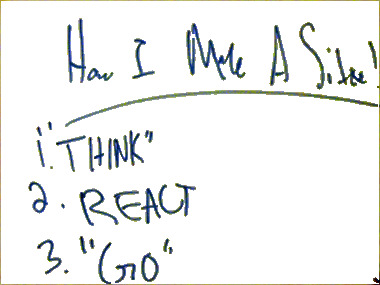 How I Make A Site!
1. "THINK"
2. REACT
3. "GO"